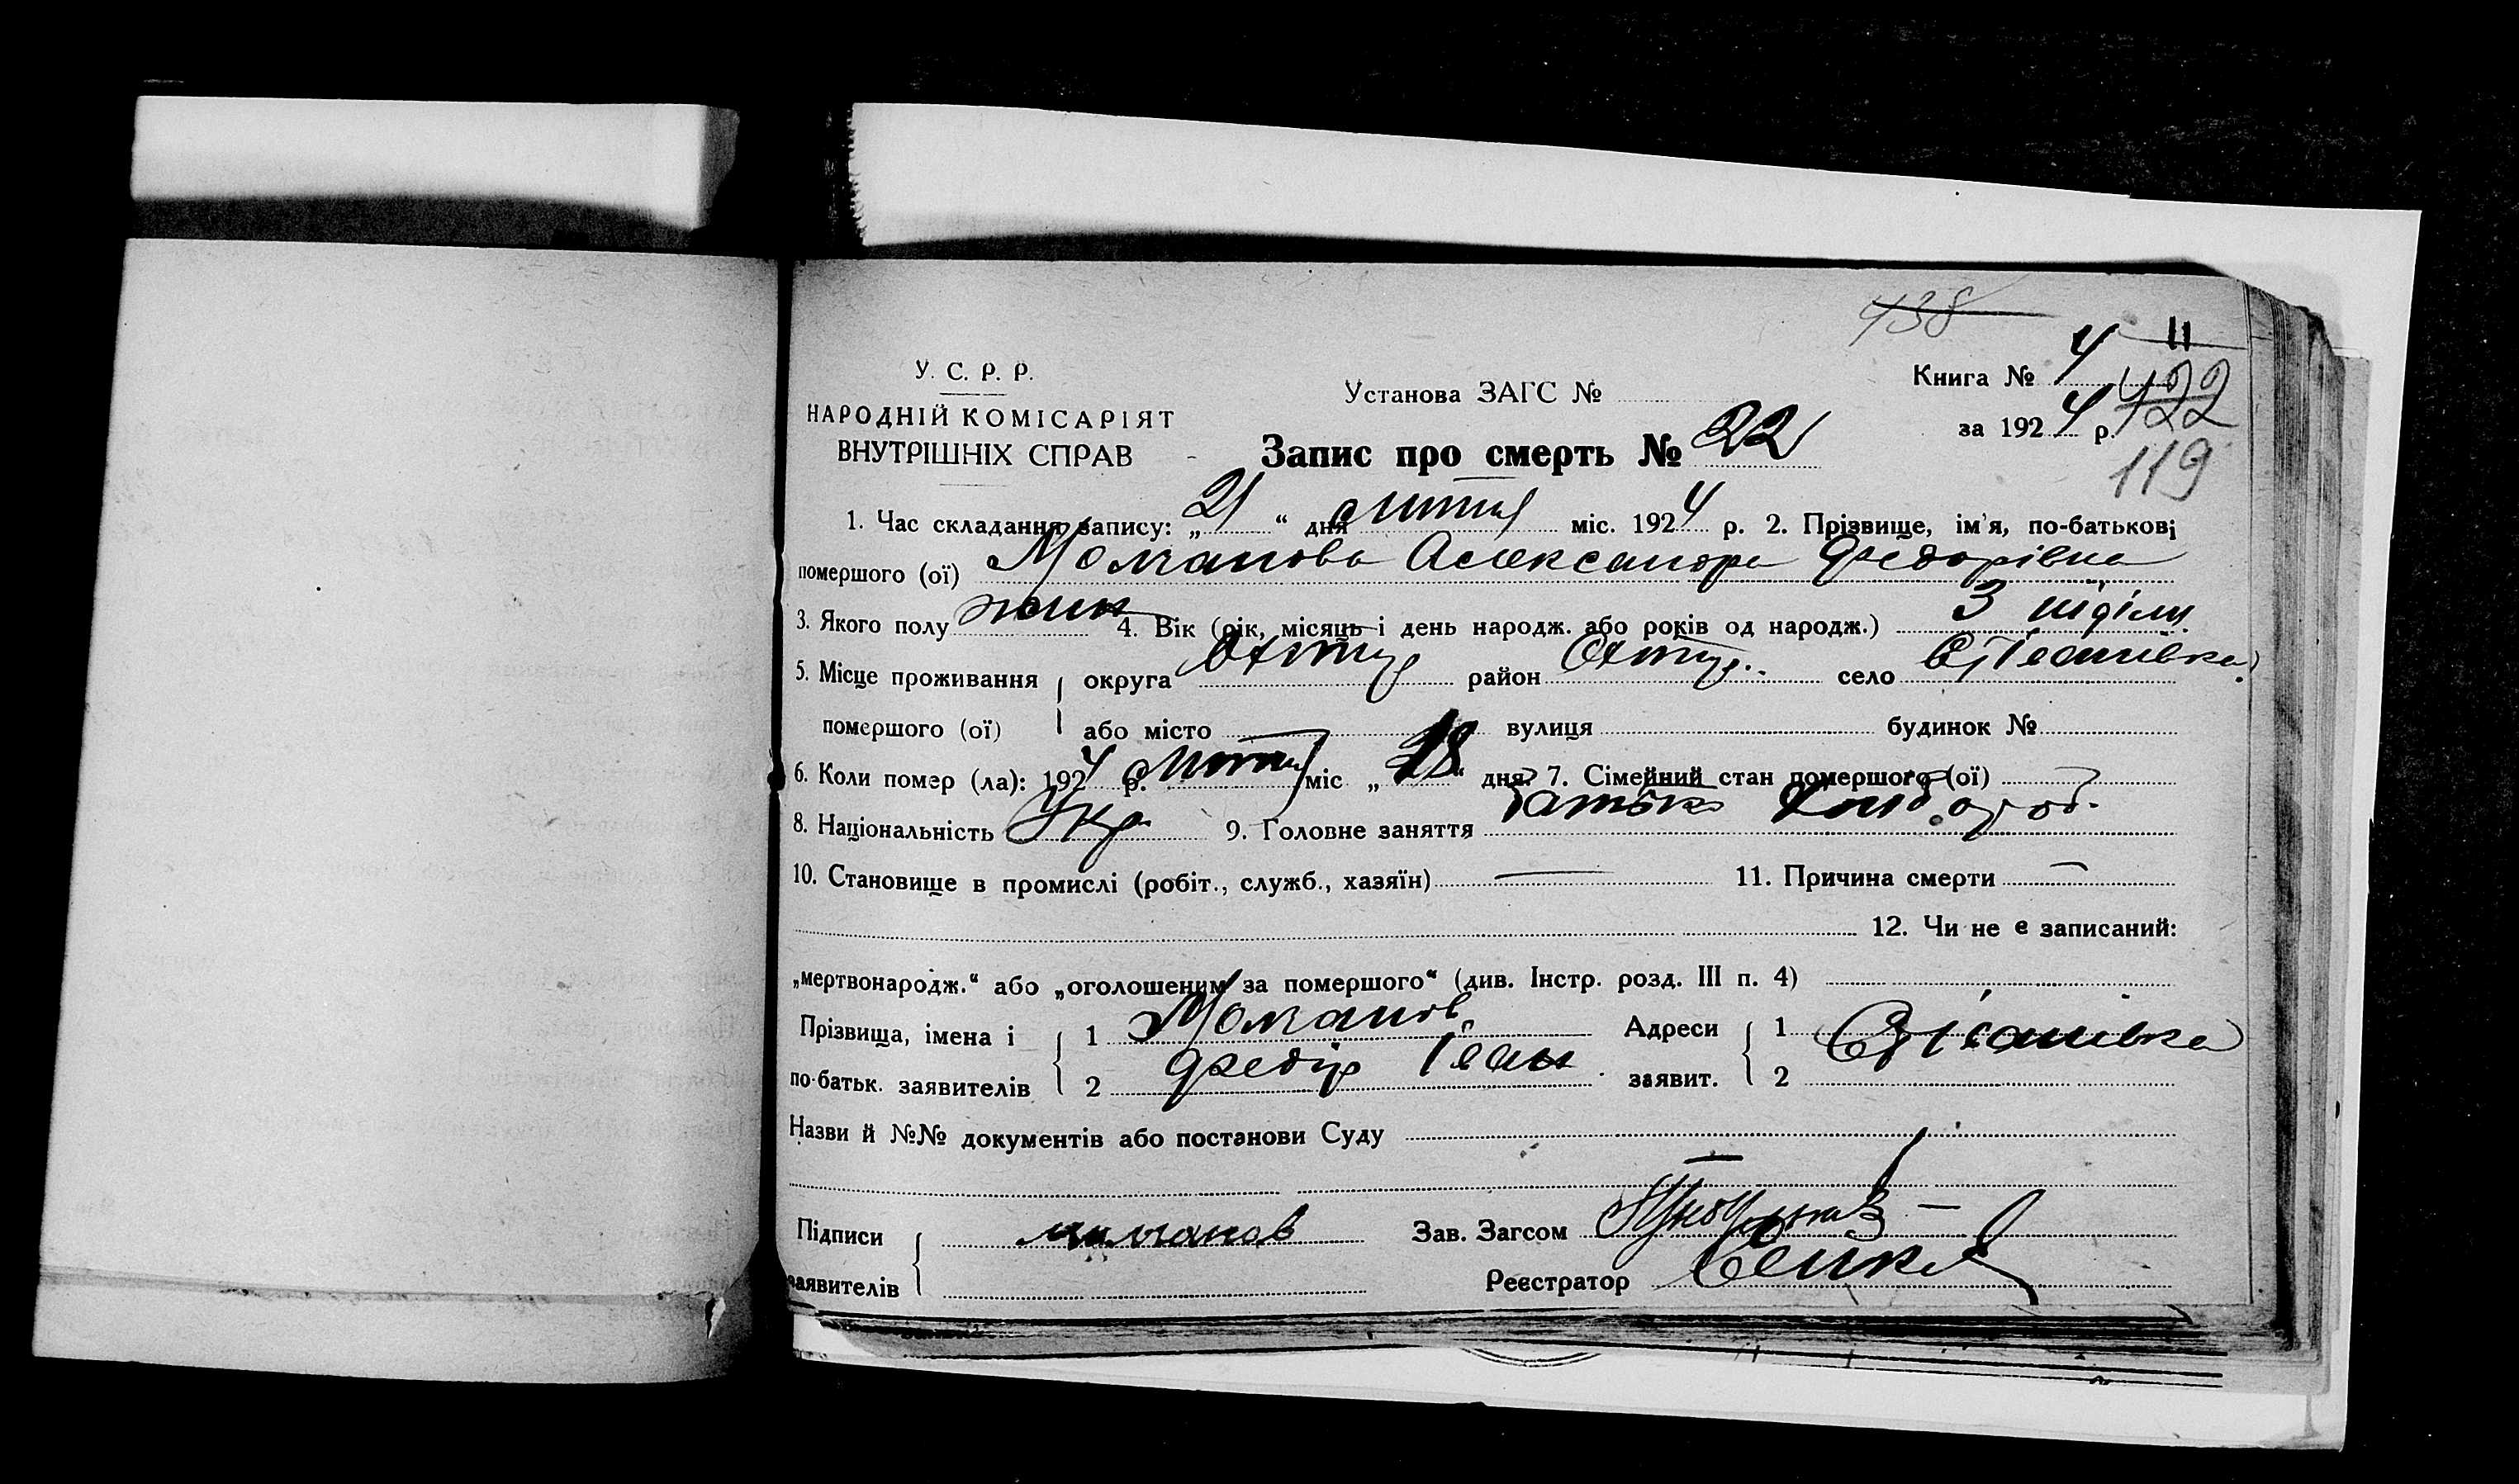 438
11
У. С. Р. Р.
НАРОДНІЙ КОМІСАРІЯТ
ВНУТРІШНІХ СПРАВ
Установа ЗАГС №
Книга № 4
422
за 1924 р.
119
Запис про смерть № 22
1. Час складання запису: „21“ дня лютня міс. 1924 р. 2. Прізвище, ім'я, по-батькові
помершого (ої) Молчанова Александра Федорівна
3. Якого полу жин 4. Вік (рік, місяць і день народж. або років од народж.) 3 ніділи
5. Місце проживання округа Охтир район Охтир. село
помершого (ої) або місто вулиця будинок №
6. Коли помер (ла): 1924 р. лютня міс „18“ дня. 7. Сімейний стан помершого (ої)
8. Національність Укр. 9. Головне заняття батько
10. Становище в промислі (робіт., служб., хазяїн) 11. Причина смерти
12. Чи не є записаний:
„мертвонародж.“ або „оголошеним за помершого“ (див. Інстр. розд. III п. 4)
Прізвища, імена і 1 Молчанов Адреси 1
по-батьк. заявителів 2 Федір Іван заявит. 2
Назви й №№ документів або постанови Суду
Підписи молчанов Зав. Загсом
заявителів Реєстратор